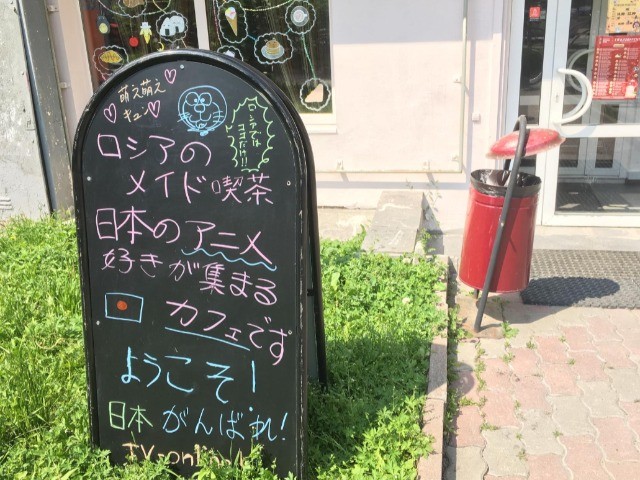 萌え萌え
キュン
ロシアでは
ココだけ!!
ロシアの
メイド喫茶
日本のアニメ
好きが集まる
カフェです
ようこそ!
日本がんばれ!